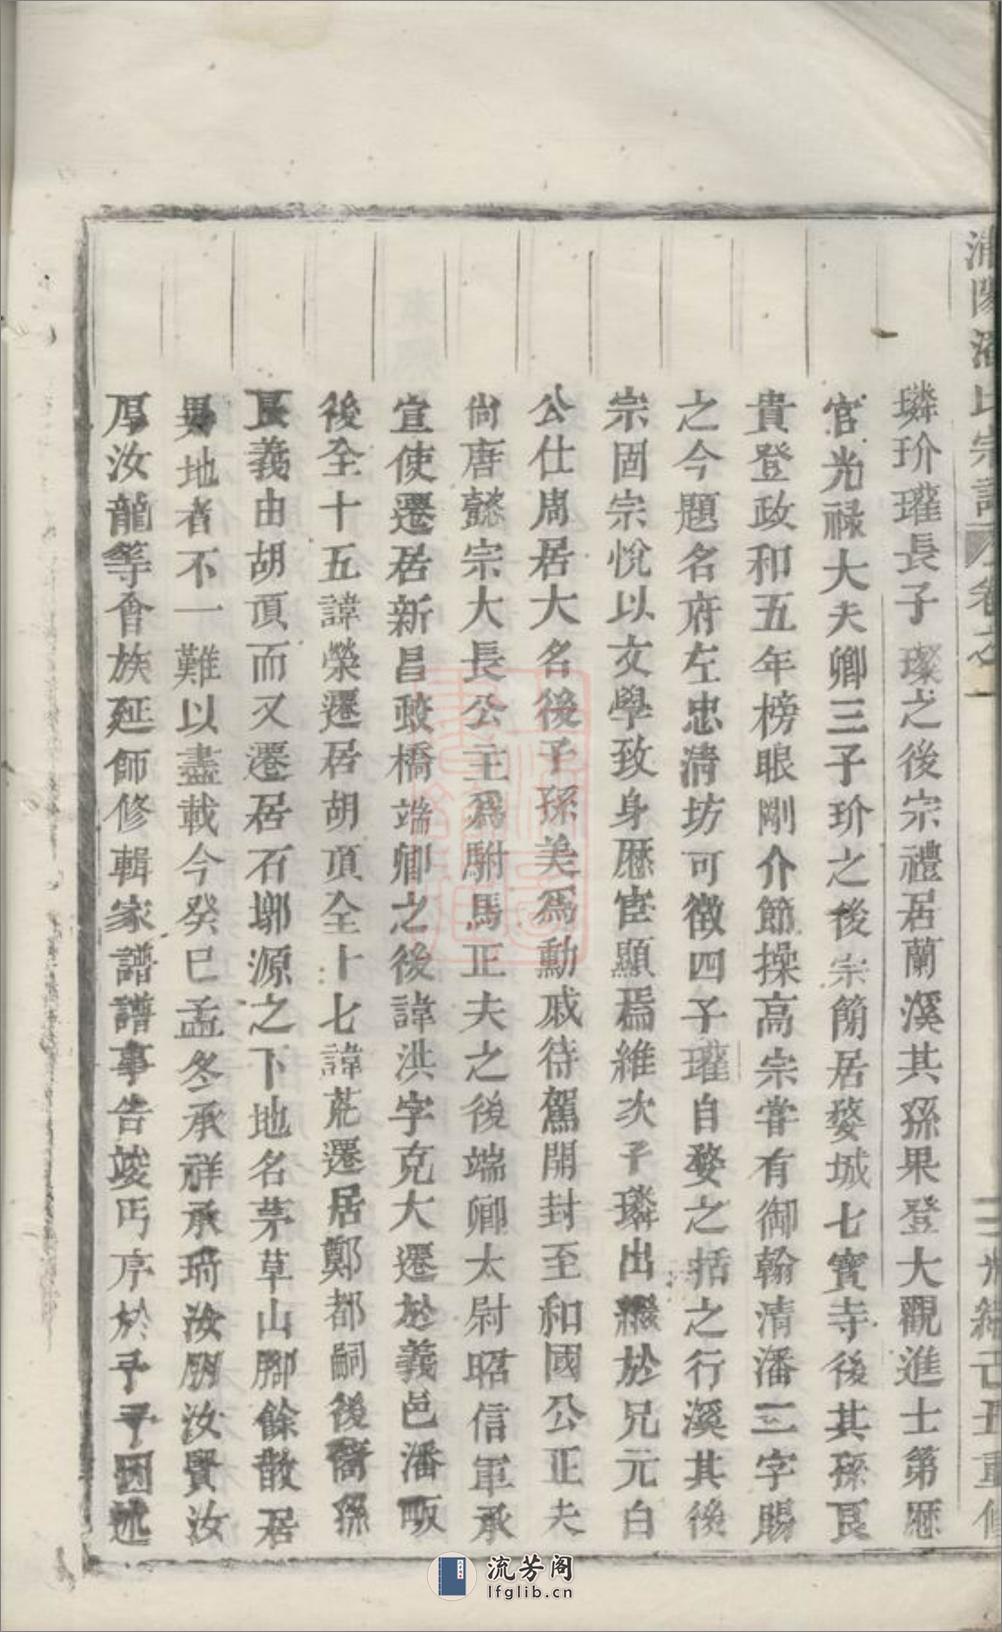 浦陽潘氏宗譜 卷之一
光緒己丑重修
璘玠瓘長子璨之後宗禮居蘭溪其孫果登大觀進士第歷
官光祿大夫卿三子玠之後宗簡居婺城七寶寺後其孫良
貴登政和五年榜眼剛介節操高宗嘗有御翰清潘二字賜
之今題名府左忠清坊可徵四子瓘自婺之括之行溪其後
宗固宗悅以文學致身歷宦顯焉維次子璘出繼於兄元白
公仕周居大名後子孫美為勳戚待駕開封至和國公正夫
尚唐懿宗大長公主為駙馬正夫之後端卿太尉昭信軍承
宣使遷居新昌敢橋端卿之後諱洪字克大遷於義邑潘畈
後全十五諱榮遷居胡頂全十七諱茈遷居鄭都嗣後裔孫
長義由胡頂而又遷居石塢源之下地名茅草山腳餘散居
異地者不一難以盡載今癸巳孟冬承祥承琦汝朋汝賢汝
厚汝龍等會族延師修輯家譜譜事告竣丐序於予予因述
流芳阁
lfglib.cn